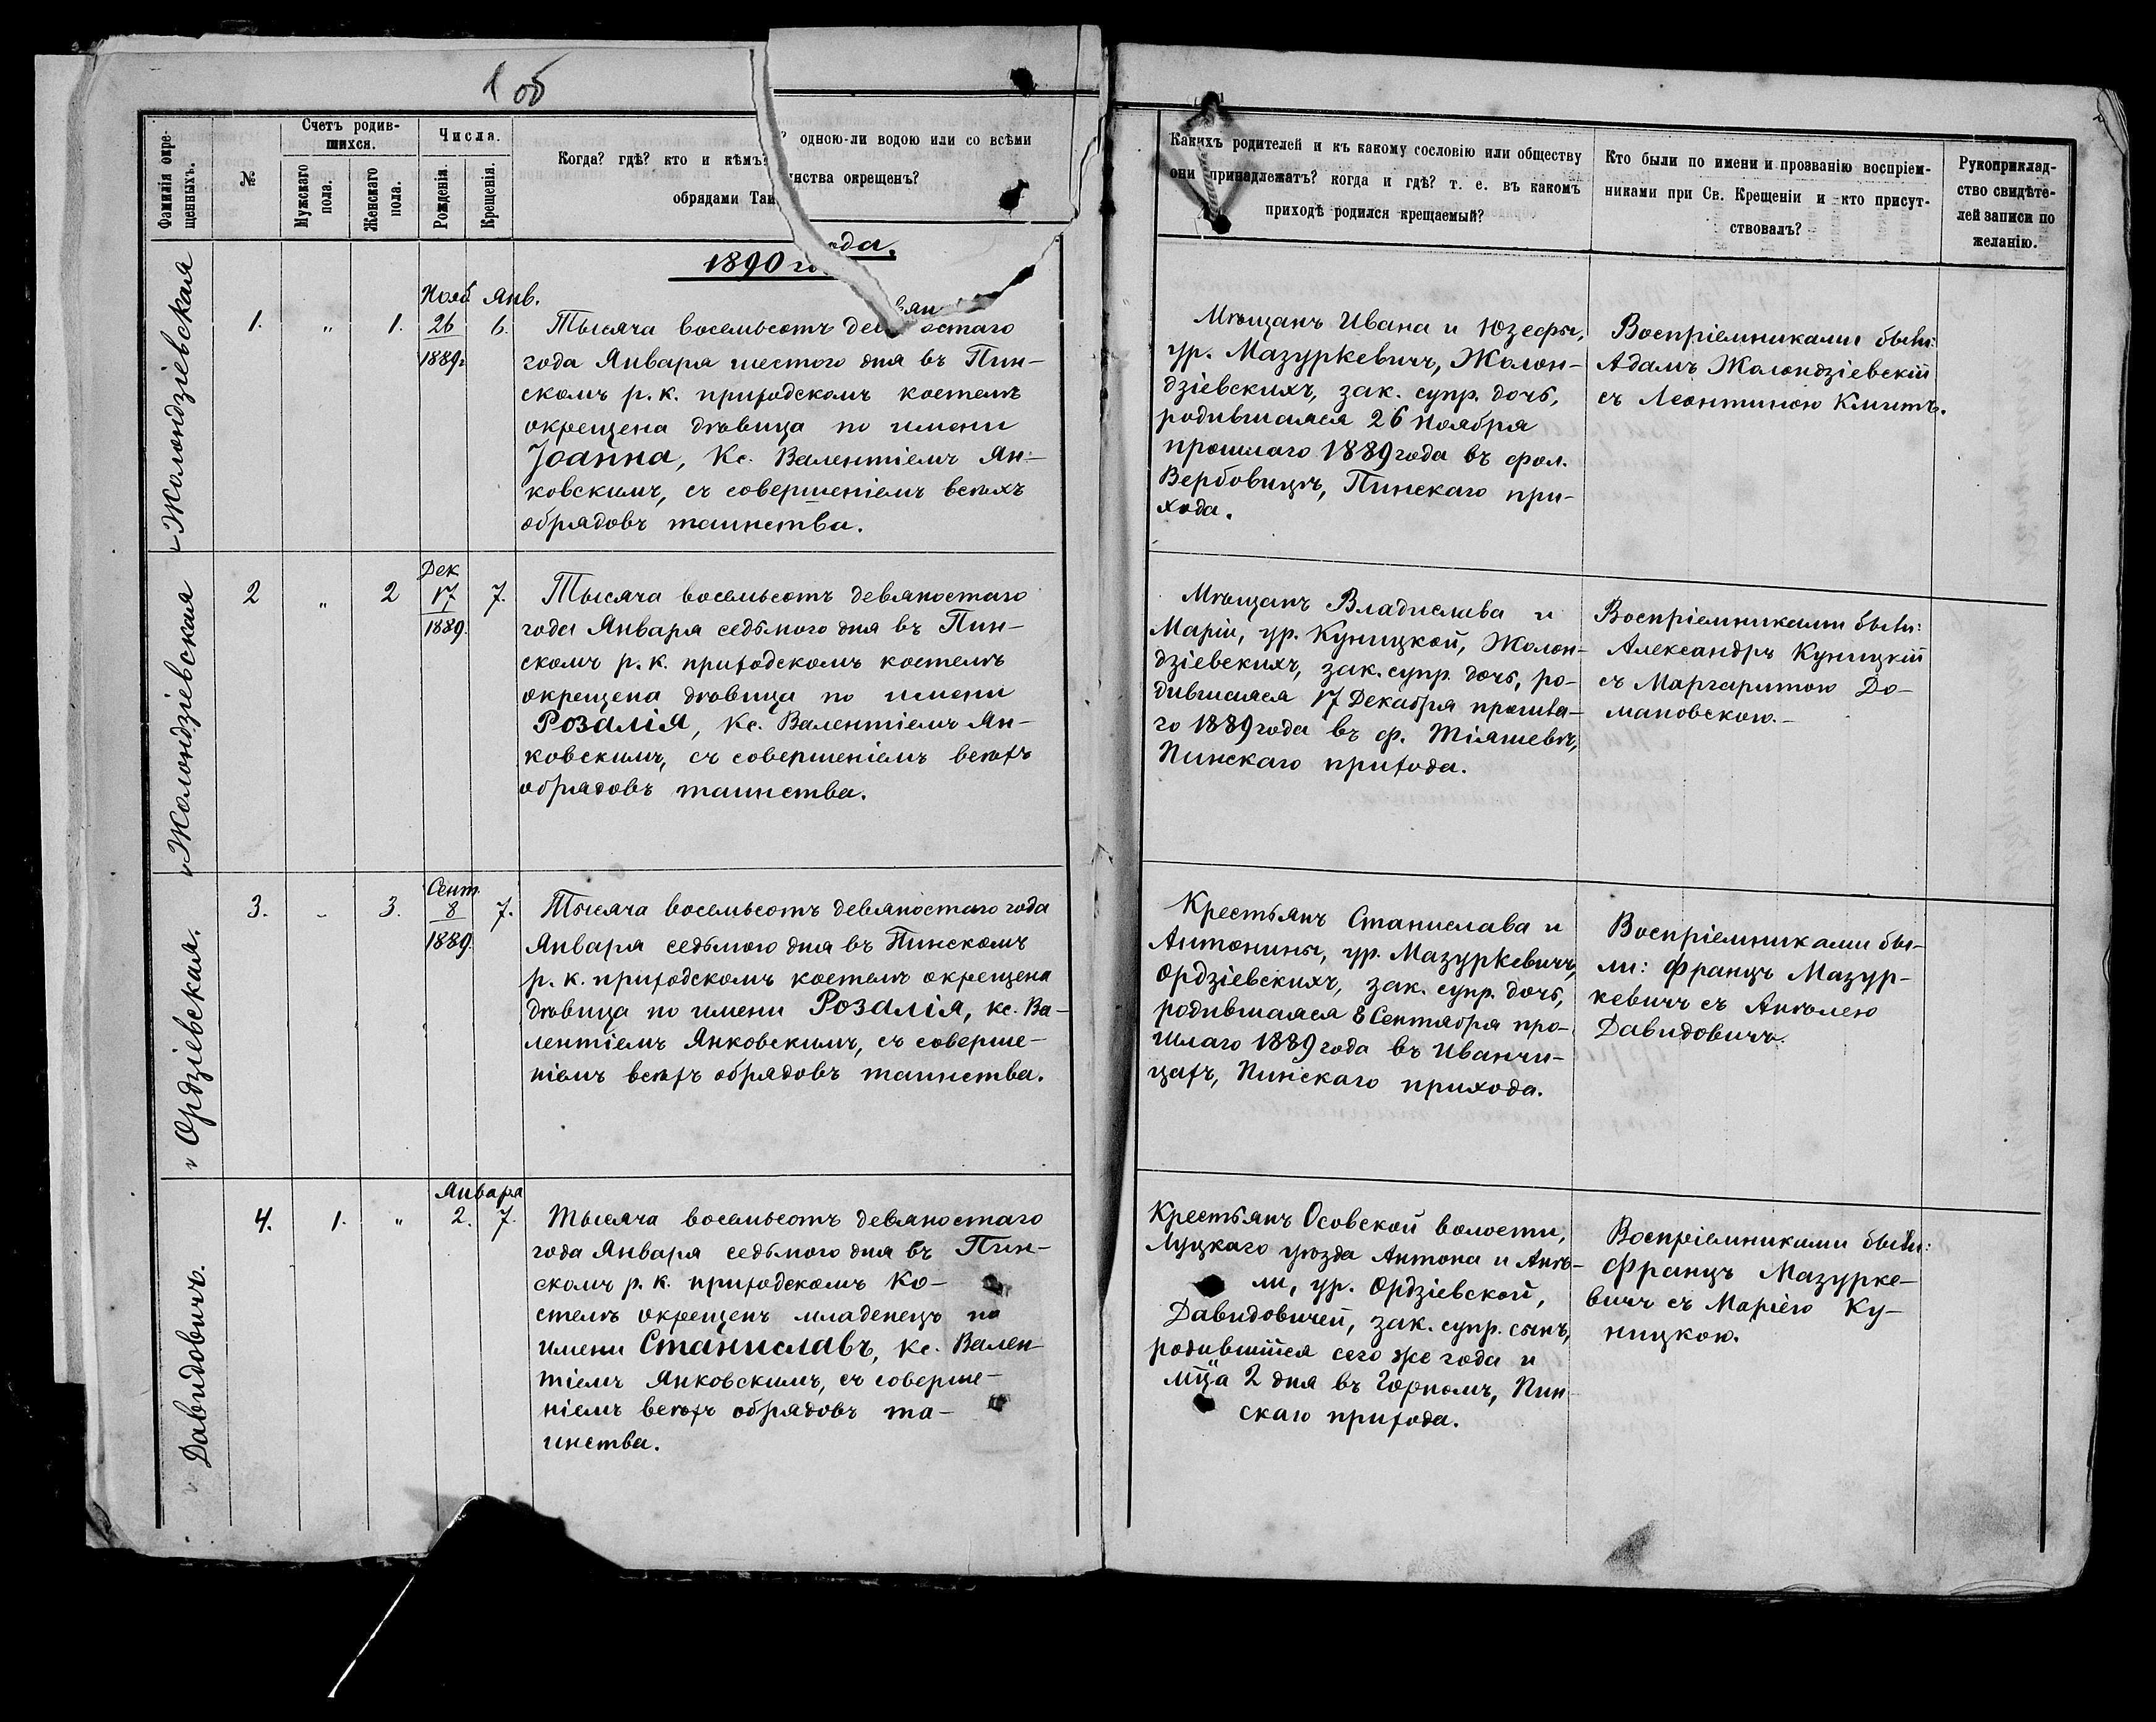 1 об
Фамилія окре-
щенныхъ.
№
Счетъ родив-
шихся.
Мужскаго
пола.
Женскаго
пола.
Числа.
Рожденія.
Крещенія.
Когда? гдѣ? кто и кѣмъ? одною-ли водою или со всѣми
обрядами Таинства окрещенъ?
Какихъ родителей и къ какому сословію или обществу
они принадлежатъ? когда и гдѣ? т. е. въ какомъ
приходѣ родился крещаемый?
Кто были по имени и прозванію воспріем-
никами при Св. Крещеніи и кто присут-
ствовалъ?
Рукоприклад-
ство свидѣте-
лей записи по
желанію.
1890 года.
Жолондзіевская
1. " 1.
Нояб. Янв.
26 6.
1889г
Тысяча восемьсотъ девяностаго
года Января шестого дня въ Пин-
скомъ р. к. приходскомъ костелѣ
окрещена дѣвица по имени
Іоанна, Кс. Валентіемъ Ян-
ковскимъ, съ совершеніемъ всѣхъ
обрядовъ таинства.
Мѣщанъ Ивана и Юзефы,
ур. Мазуркевичъ, Жолон-
дзіевскихъ, зак. супр. дочь,
родившаяся 26 Ноября
прошлаго 1889 года въ фол.
Вербовицѣ, Пинскаго при-
хода.
Воспріемниками были:
Адамъ Жолондзіевскій
съ Леонтиною Клитъ.
Жолондзіевская
2 " 2
Дек
17 7.
1889.
Тысяча восемьсотъ девяностаго
года Января седьмого дня въ Пин-
скомъ р. к. приходскомъ костелѣ
окрещена дѣвица по имени
Розалія, Кс. Валентіемъ Ян-
ковскимъ, съ совершеніемъ всѣхъ
обрядовъ таинства.
Мѣщанъ Владислава и
Маріи, ур. Куницкой, Жолон-
дзіевскихъ, зак. супр. дочь, ро-
дившаяся 17 Декабря прошла-
го 1889 года въ ф. Тіяшевѣ,
Пинскаго прихода.
Воспріемниками были:
Александръ Куницкій
съ Маргаритою До-
мановскою.-
Ордзіевская.
3. " 3.
Сент.
8 7.
1889.
Тысяча восемьсотъ девяностаго года
Января седьмого дня въ Пинскомъ
р. к. приходскомъ костелѣ окрещена
дѣвица по имени Розалія, кс. Ва-
лентіемъ Янковскимъ, съ соверше-
ніемъ всѣхъ обрядовъ таинства.
Крестьянъ Станислава и
Антонины, ур. Мазуркевичъ,
Ордзіевскихъ, зак. супр. дочь,
родившаяся 8 Сентября про-
шлаго 1889 года въ Иванчи-
цахъ, Пинскаго прихода.
Воспріемниками бы-
ли: Францъ Мазур-
кевичъ съ Анѣлею
Давидовичъ.
Давидовичъ.
4. 1. "
Января
2. 7.
Тысяча восемьсотъ девяностаго
года Января седьмого дня въ Пин-
скомъ р. к. приходскомъ Ко-
стелѣ окрещенъ младенецъ по
имени Станиславъ, кс. Вален-
тіемъ Янковскимъ, съ соверше-
ніемъ всѣхъ обрядовъ та-
инства.
Крестьянъ Осовской волости,
Луцкаго уѣзда Антона и Анѣ-
ли, ур. Ордзіевской,
Давидовичей, зак. супр. сынъ,
родившійся сего же года и
мца 2 дня въ Горномъ, Пин-
скаго прихода.
Воспріемниками были:
Францъ Мазурке-
вичъ съ Маріею Ку-
ницкою.